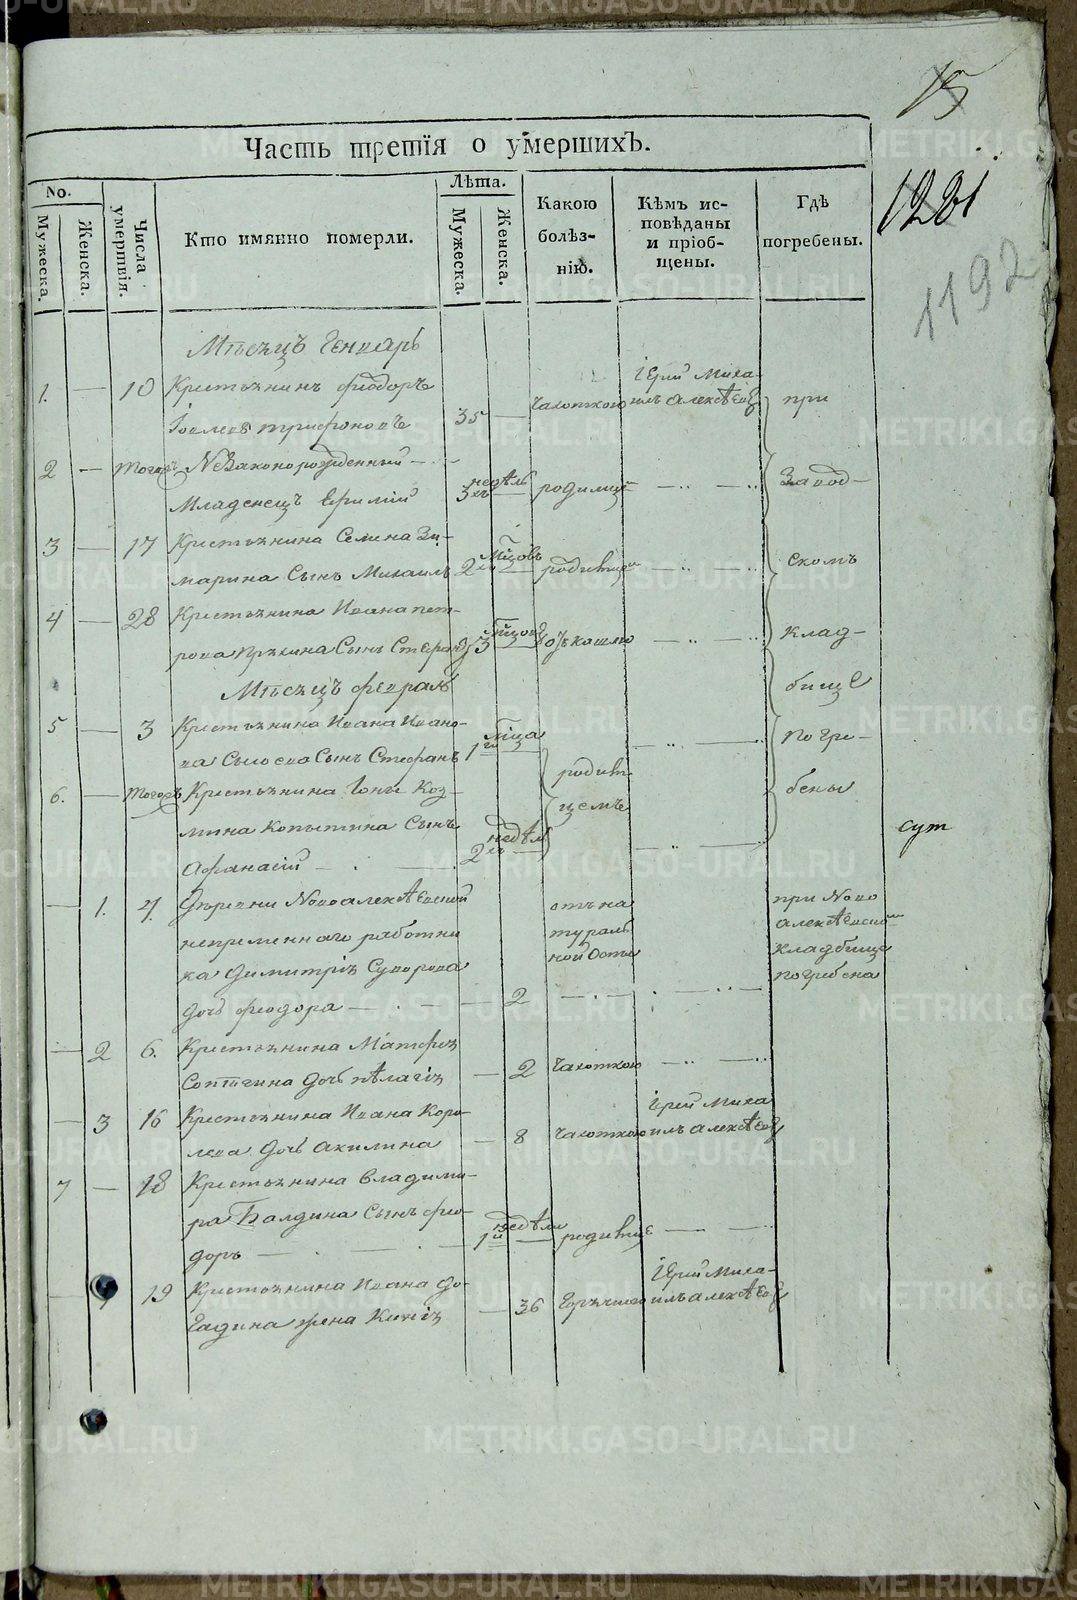 15
Часть третія о умершихъ.
1221
1192
No.
Мужеска.
Женска.
Числа умертвія.
Кто имянно померли.
Лѣта.
Мужеска.
Женска.
Какою болѣз-нію.
Кѣмъ ис-повѣданы и пріоб-щены.
Гдѣ погребены.
Мѣсяцъ Генварь
1. — 10 Крестьянинъ Феодоръ
Іовлевъ Трифоновъ 35 — Чахоткою Іерей Миха-илъ Алексѣевъ при
2 — тогожъ Незаконорожденный
Младенецъ Ефимій 3 недѣль родимце — Завод-
3 — 17 Крестьянина Семена Зи-
марина Сынъ Михаилъ 2 мцовъ родимцемъ — скомъ
4 — 28 Крестьянина Ивана Пет-
рова Сынъ Стефанъ 3 мцовъ отъ кашлю — клад-
Мѣсяцъ Февраль бище
5 — 3 Крестьянина Ивана Ивано-
ва Сысоева Сынъ Стефанъ 1 мца — погре-
6. — тогожъ Крестьянина Іоны Коз-
мина Копытина Сынъ родим-цемъ бены
Афанасій — 2 недѣль —
сут
— 1. 4. Деревни Новоалексѣевской
непременнаго работни
ка Димитрія Суворова отъ натуральной оспы
дочь Феодора — 2 — при Ново алексѣевском кладбище погребена
— 2 6. Крестьянина Матфея
дочь Пелагія — 2 Чахоткою —
— 3 16 Крестьянина Ивана Коро-
лева дочь Акилина — 8 Чахоткою Іерей Миха илъ Алексѣевъ
7 — 18 Крестьянина Владими-
ра Балдина Сынъ Фео-
доръ — 1 недѣли родимце —
— 19 Крестьянина Ивана До-
гадина жена Ксенія — 36 Горячкою Іерей Миха-илъ Алексѣевъ
METRIKI.GASO-URAL.RU